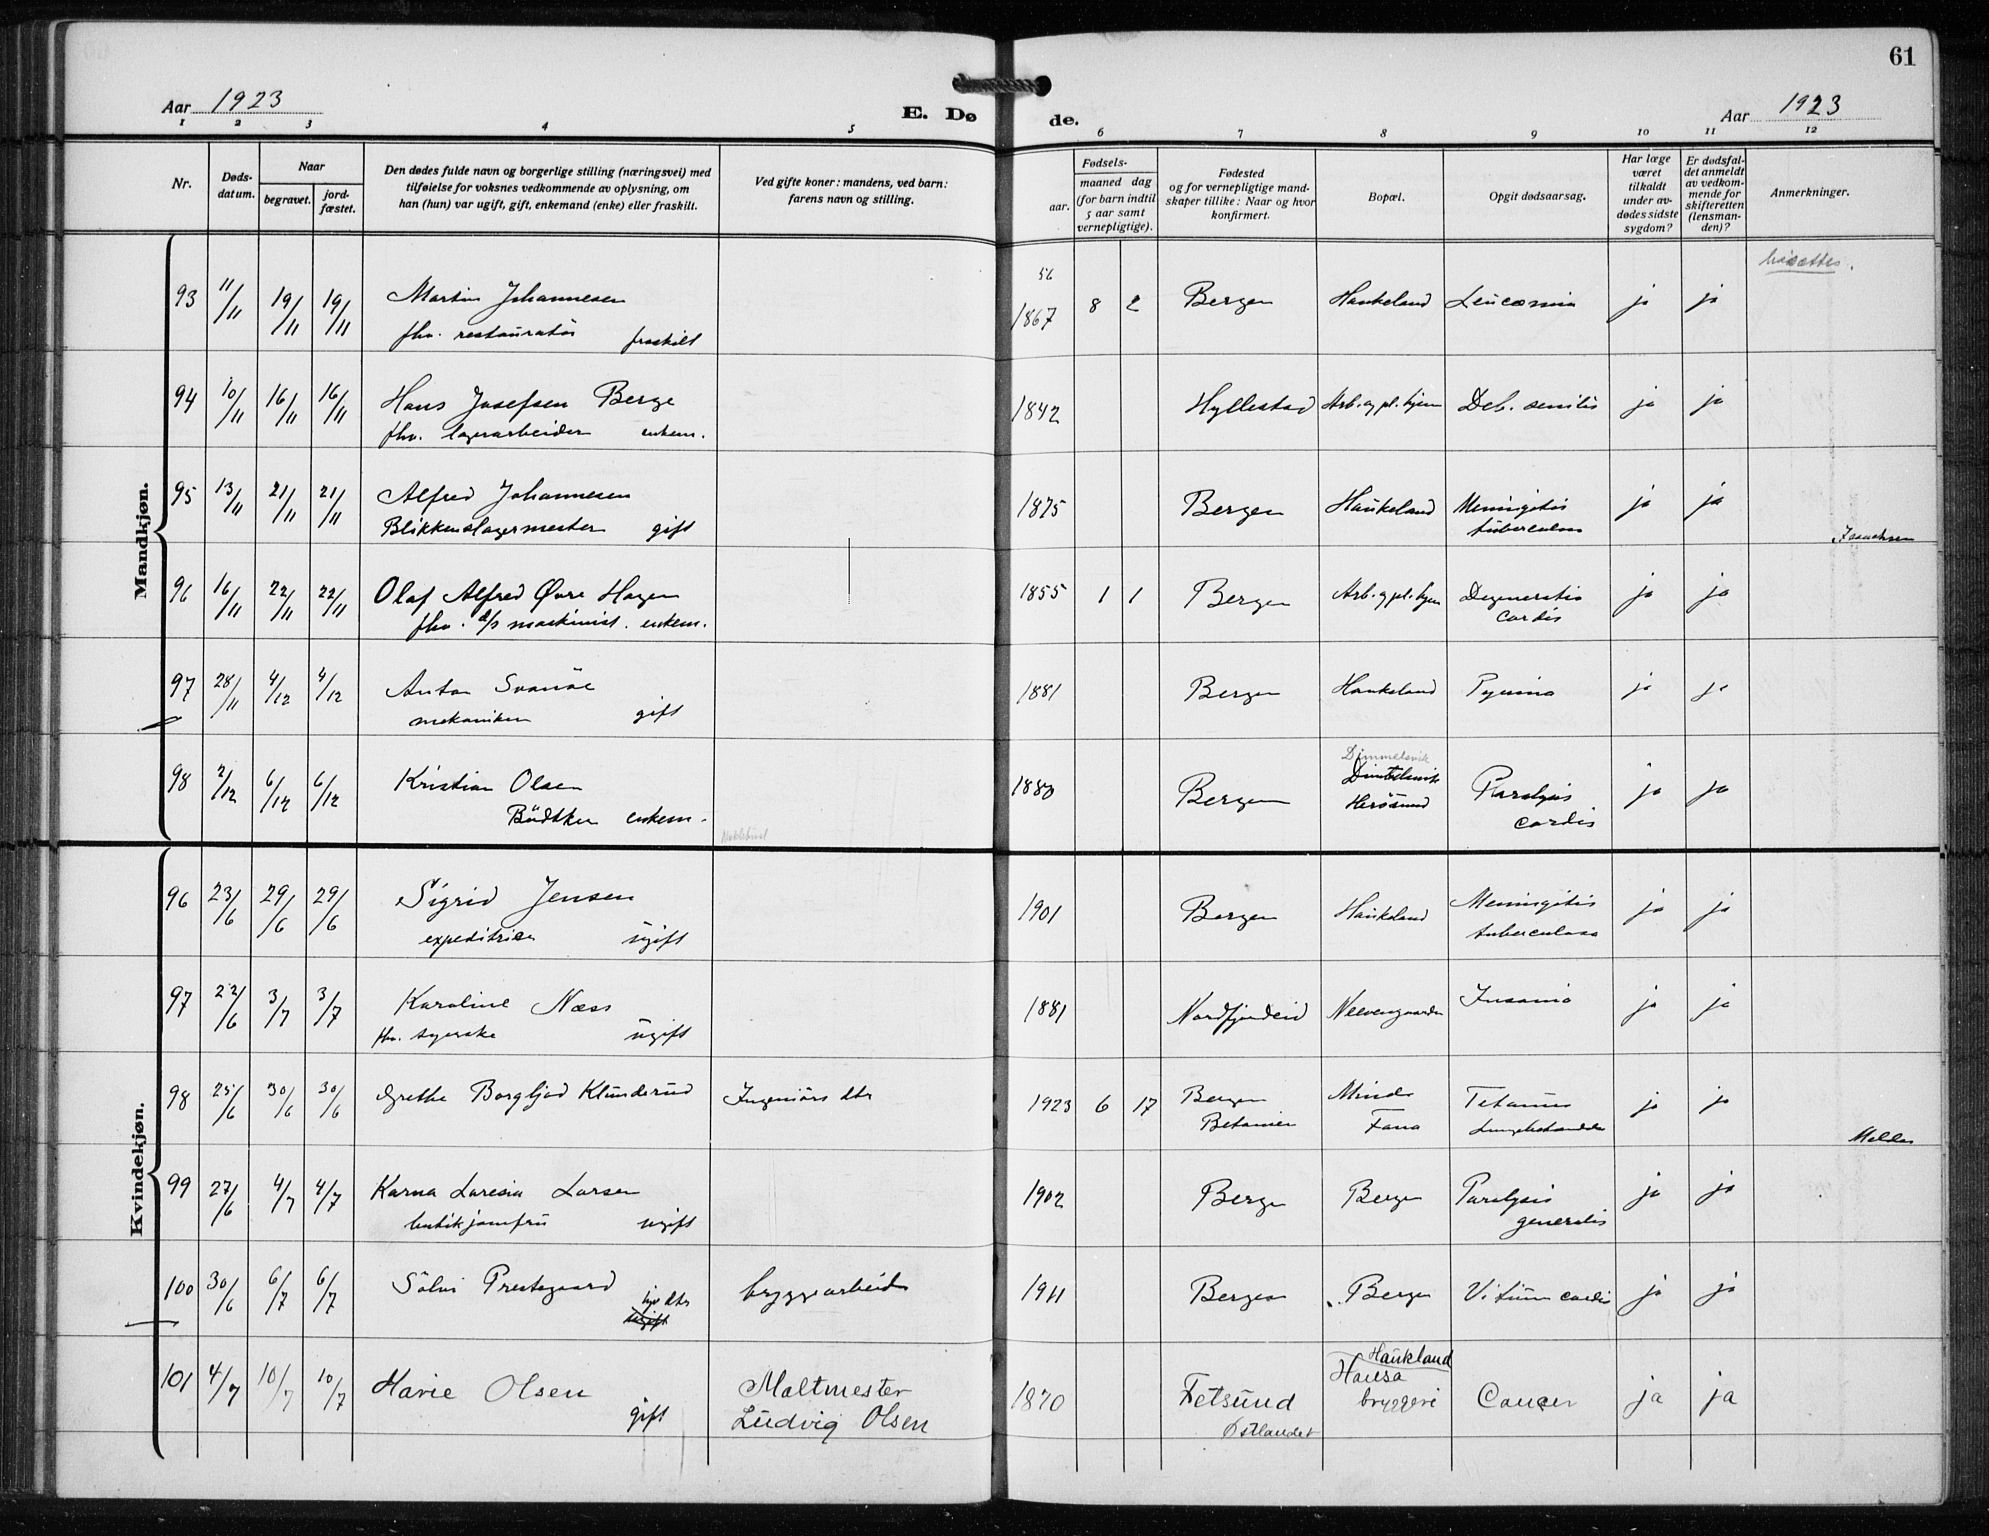 61
Aar 1923
E. Dø
de.
Aar 1923
1 2 3 4 5 6 7 8 9 10 11 12
Nr.
Døds-
datum.
Naar
begravet.
jord-
fæstet.
Den dødes fulde navn og borgerlige stilling (næringsvei) med
tilføielse for voksnes vedkommende av oplysning, om
han (hun) var ugift, gift, enkemand (enke) eller fraskilt.
Ved gifte koner: mandens, ved barn:
farens navn og stilling.
Fødsels-
aar.
maaned dag
(for barn indtil
5 aar samt
vernepligtige).
Fødested
og for vernepligtige mand-
skaper tillike: Naar og hvor
konfirmert.
Bopæl.
Opgit dødsaarsag.
Har læge
været
tilkaldt
under av-
dødes sidste
sygdom?
Er dødsfal-
det anmeldt
av vedkom-
mende for
skifteretten
(lensman-
den)?
Anmerkninger.
Mandkjøn.
bisættes.
56
93 11/11 19/11 19/11 Martin Johannesen 1867 8 2 Bergen Haukeland Leucæmia ja ja
fhv. restauratör fraskilt
94 10/11 16/11 16/11 Hans Josefsen Berge 1842 Hyllestad Arb. og pl. hjem Deb. senilis ja ja
fhv. lagerarbeider enkem.
95 13/11 21/11 21/11 Alfred Johannesen 1875 Bergen Haukeland Meningitis ja ja
Blikkenslagermester gift tuberculosa
96 16/11 22/11 22/11 Olaf Alfred Øvre Hagen 1855 1 1 Bergen Arb. og pl. hjem Degeneratio ja ja
fhv. d/s maskinist. enkem. cordis
97 28/11 4/12 4/12 Anton Svanöe 1881 Bergen Haukeland Pyæmia ja ja
mekaniker gift
Dimmelsvik
98 2/12 6/12 6/12 Kristian Olsen 1880 Bergen Herösund Paralysis ja ja
Bödtker enkem. cordis
Kvindekjøn.
96 23/6 29/6 29/6 Sigrid Jensen 1901 Bergen Haukeland Meningitis ja ja
expeditrice ugift tuberculosa
97 22/6 3/7 3/7 Karoline Næss 1881 Nordfjordeid Neevengaarden Insania ja ja
fhv. syerske ugift
98 25/6 30/6 30/6 Grethe Borgljod Klunderud Ingeniörs dtr 1923 6 17 Bergen Minde Tetanus ja ja
Betanien Fana
99 27/6 4/7 4/7 Karna Laresia Larsen 1902 Bergen Bergen Paralysis ja ja
butikjomfru ugift generalis
100 30/6 6/7 6/7 Sölvi Prestegaard bryggearbeider 1911 Bergen Bergen Vitium cordis ja ja
dtr
ugift
Haukland
101 4/7 10/7 10/7 Marie Olsen Maltmester 1870 Fetsund Hansa Cancer ja ja
gift Ludvig Olsen Østlandet bryggeri